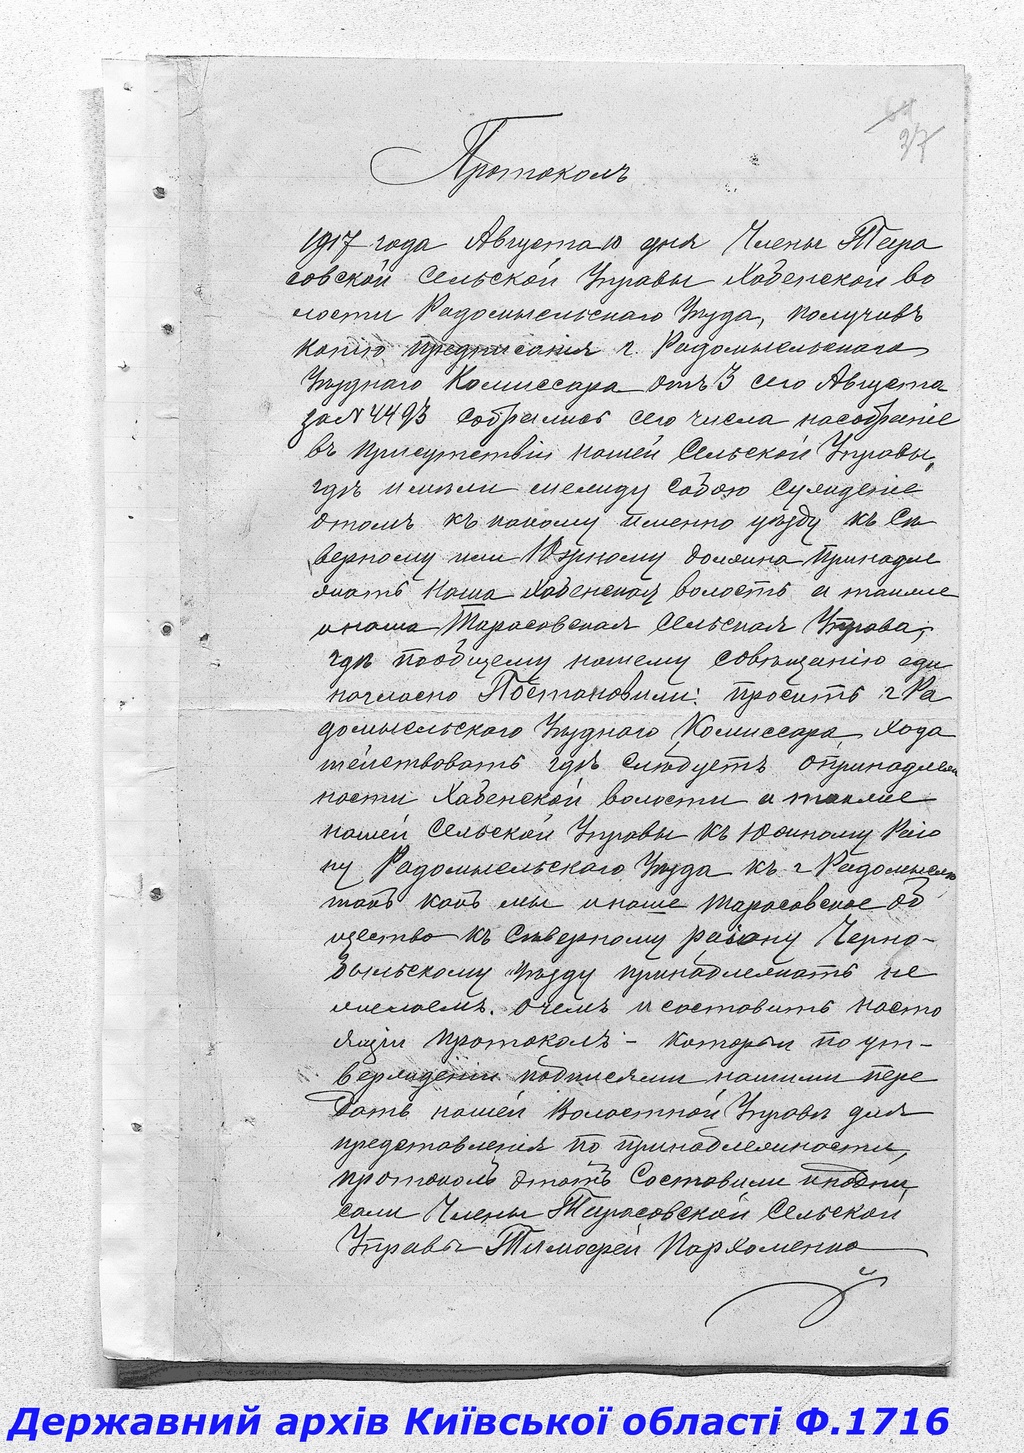 37
Протоколъ
1917 года Августа 10 дня Члены Тара
совской Сельской Управы Хабенской во
лости Радомысльскаго Уѣзда, получивъ
копію предписанія г. Радомысльскаго
Уѣзднаго Комиссара отъ 3 сего Августа
за № 4493 собрались сего числа на собраніе
въ присутствіи нашей Сельской Управы,
гдѣ имѣли между собою сужденіе
о томъ къ какому именно уѣзду къ Сѣ
верному или Южному должна принадле
жать наша Хабенская волость а также
и наша Тарасовская Сельская Управа,
гдѣ по общему нашему совѣщанію еди
ногласно Постановили: просить г Ра
домысльскаго Уѣзднаго Комиссара хода
тайствовать гдѣ слѣдуетъ о принадлеж
ности Хабенской волости а также
нашей Сельской Управы къ Южному Раіо
ну Радомысльскаго Уѣзда къ г Радомыслю
такъ какъ мы и наше Тарасовское об
щество къ Сѣверному району Черно-
быльскому Уѣзду принадлежать не
желаемъ. О чемъ и составить насто
ящій протоколъ - который по ут-
вержденіи подписями нашими пере
дать нашей Волостной Управѣ для
представленія по принадлежности,
протоколъ этотъ Составили и подпи
сали Члены Тарасовской Сельской
Управы Тимофей Пархоменко
Державний архів Київської області Ф.1716